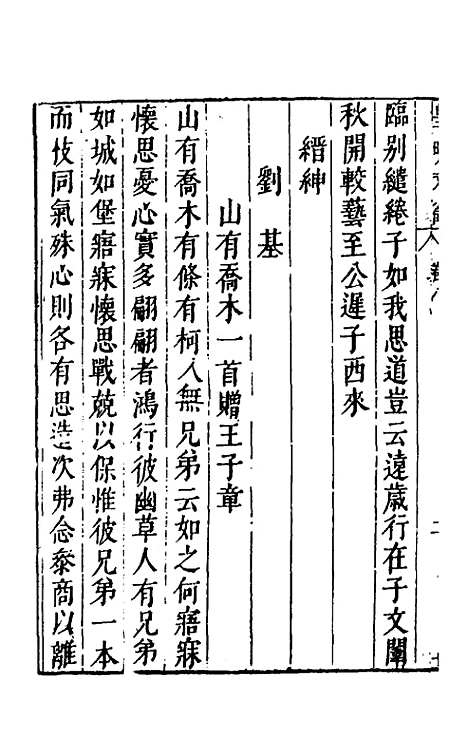 臨別繾綣子如我思道豈云遠歲行在子文闈
秋開較藝至公遲子西來
縉紳
劉基
山有喬木一首贈王子章
山有喬木有條有柯人無兄弟云如之何寤寐
懷思憂心實多翩翩者鴻行彼幽草人有兄弟
如城如堡寤寐懷思戰兢以保惟彼兄弟一本
而伎同氣殊心則各有思造次弗念參商以離